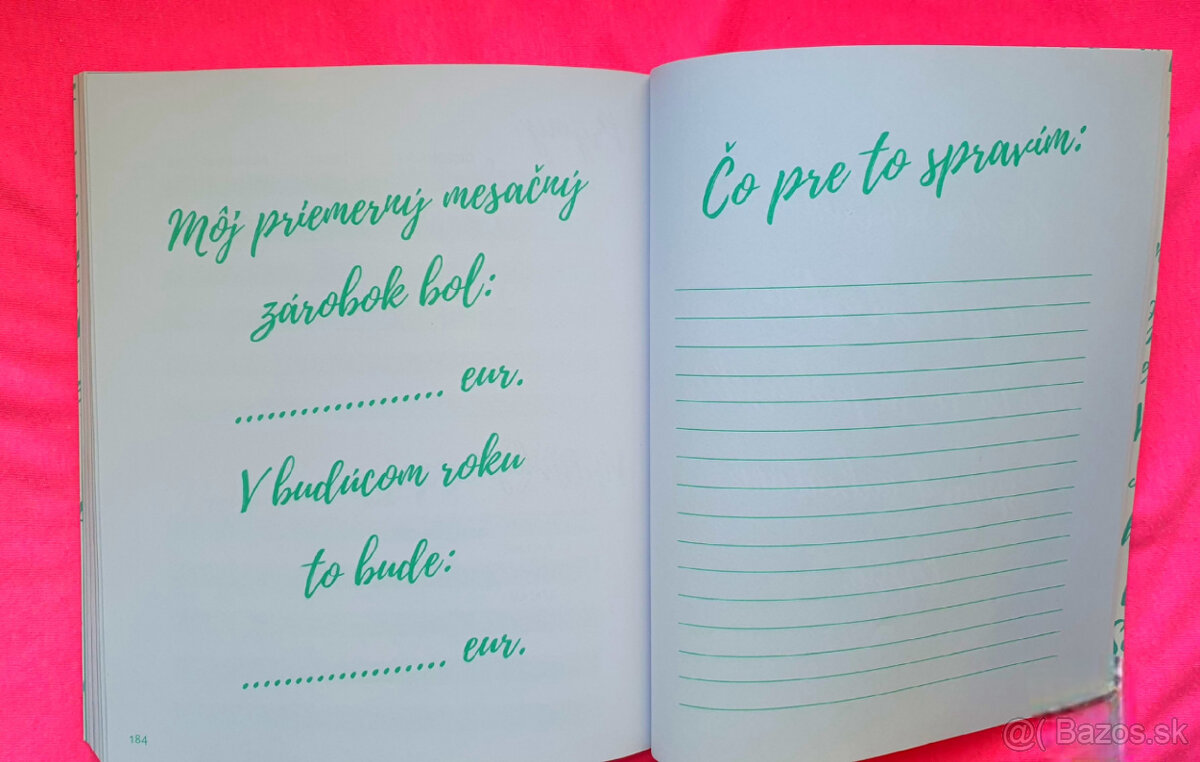 Môj priemerný mesačný
zárobok bol:
................... eur.
V budúcom roku
to bude:
................... eur.
184
Čo pre to spravím:
@( Bazos.sk